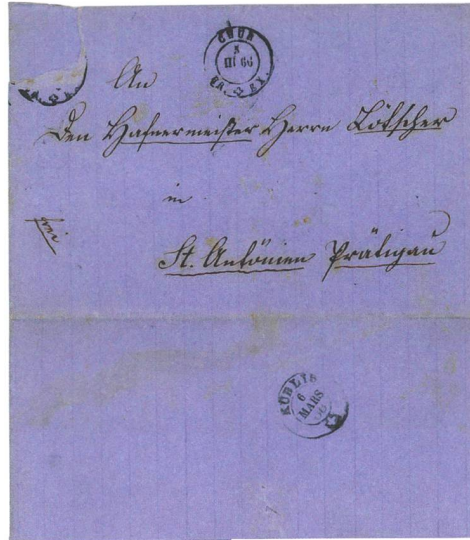 CHUR
III 66
BR. EX.
An
Den Hafnermeister Herrn Lötscher
in
frei
St. Antönien Prätigau
KÜBLIS
6
MARS